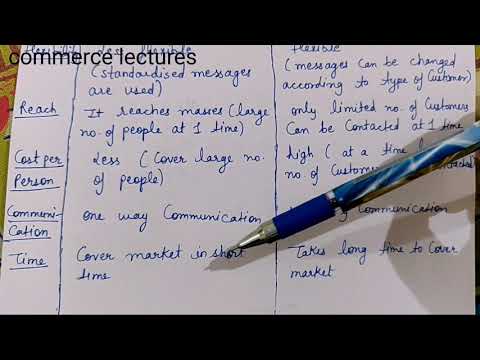 commerce lectures
(standardised messages are used)
(messages can be changed according to type of Customer)
Reach
It reaches masses (large no. of people at 1 time)
only limited no. of Customers Can be Contacted at 1 time
Cost per Person
Less (Cover large no. of people)
high (at a time l
no. of Customer
Communi-cation
one way Communication
Communication
Time
Cover market in short time
Takes long time to Cover market